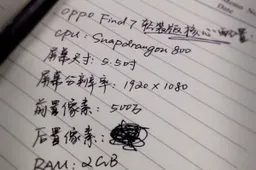 Date
oppo Find 7 轻装版 核心配置
CPU: Snapdrangon 800
屏幕尺寸: 5.5吋
屏幕分辨率: 1920×1080
前置像素: 500万
后置像素:
RAM: 2GB